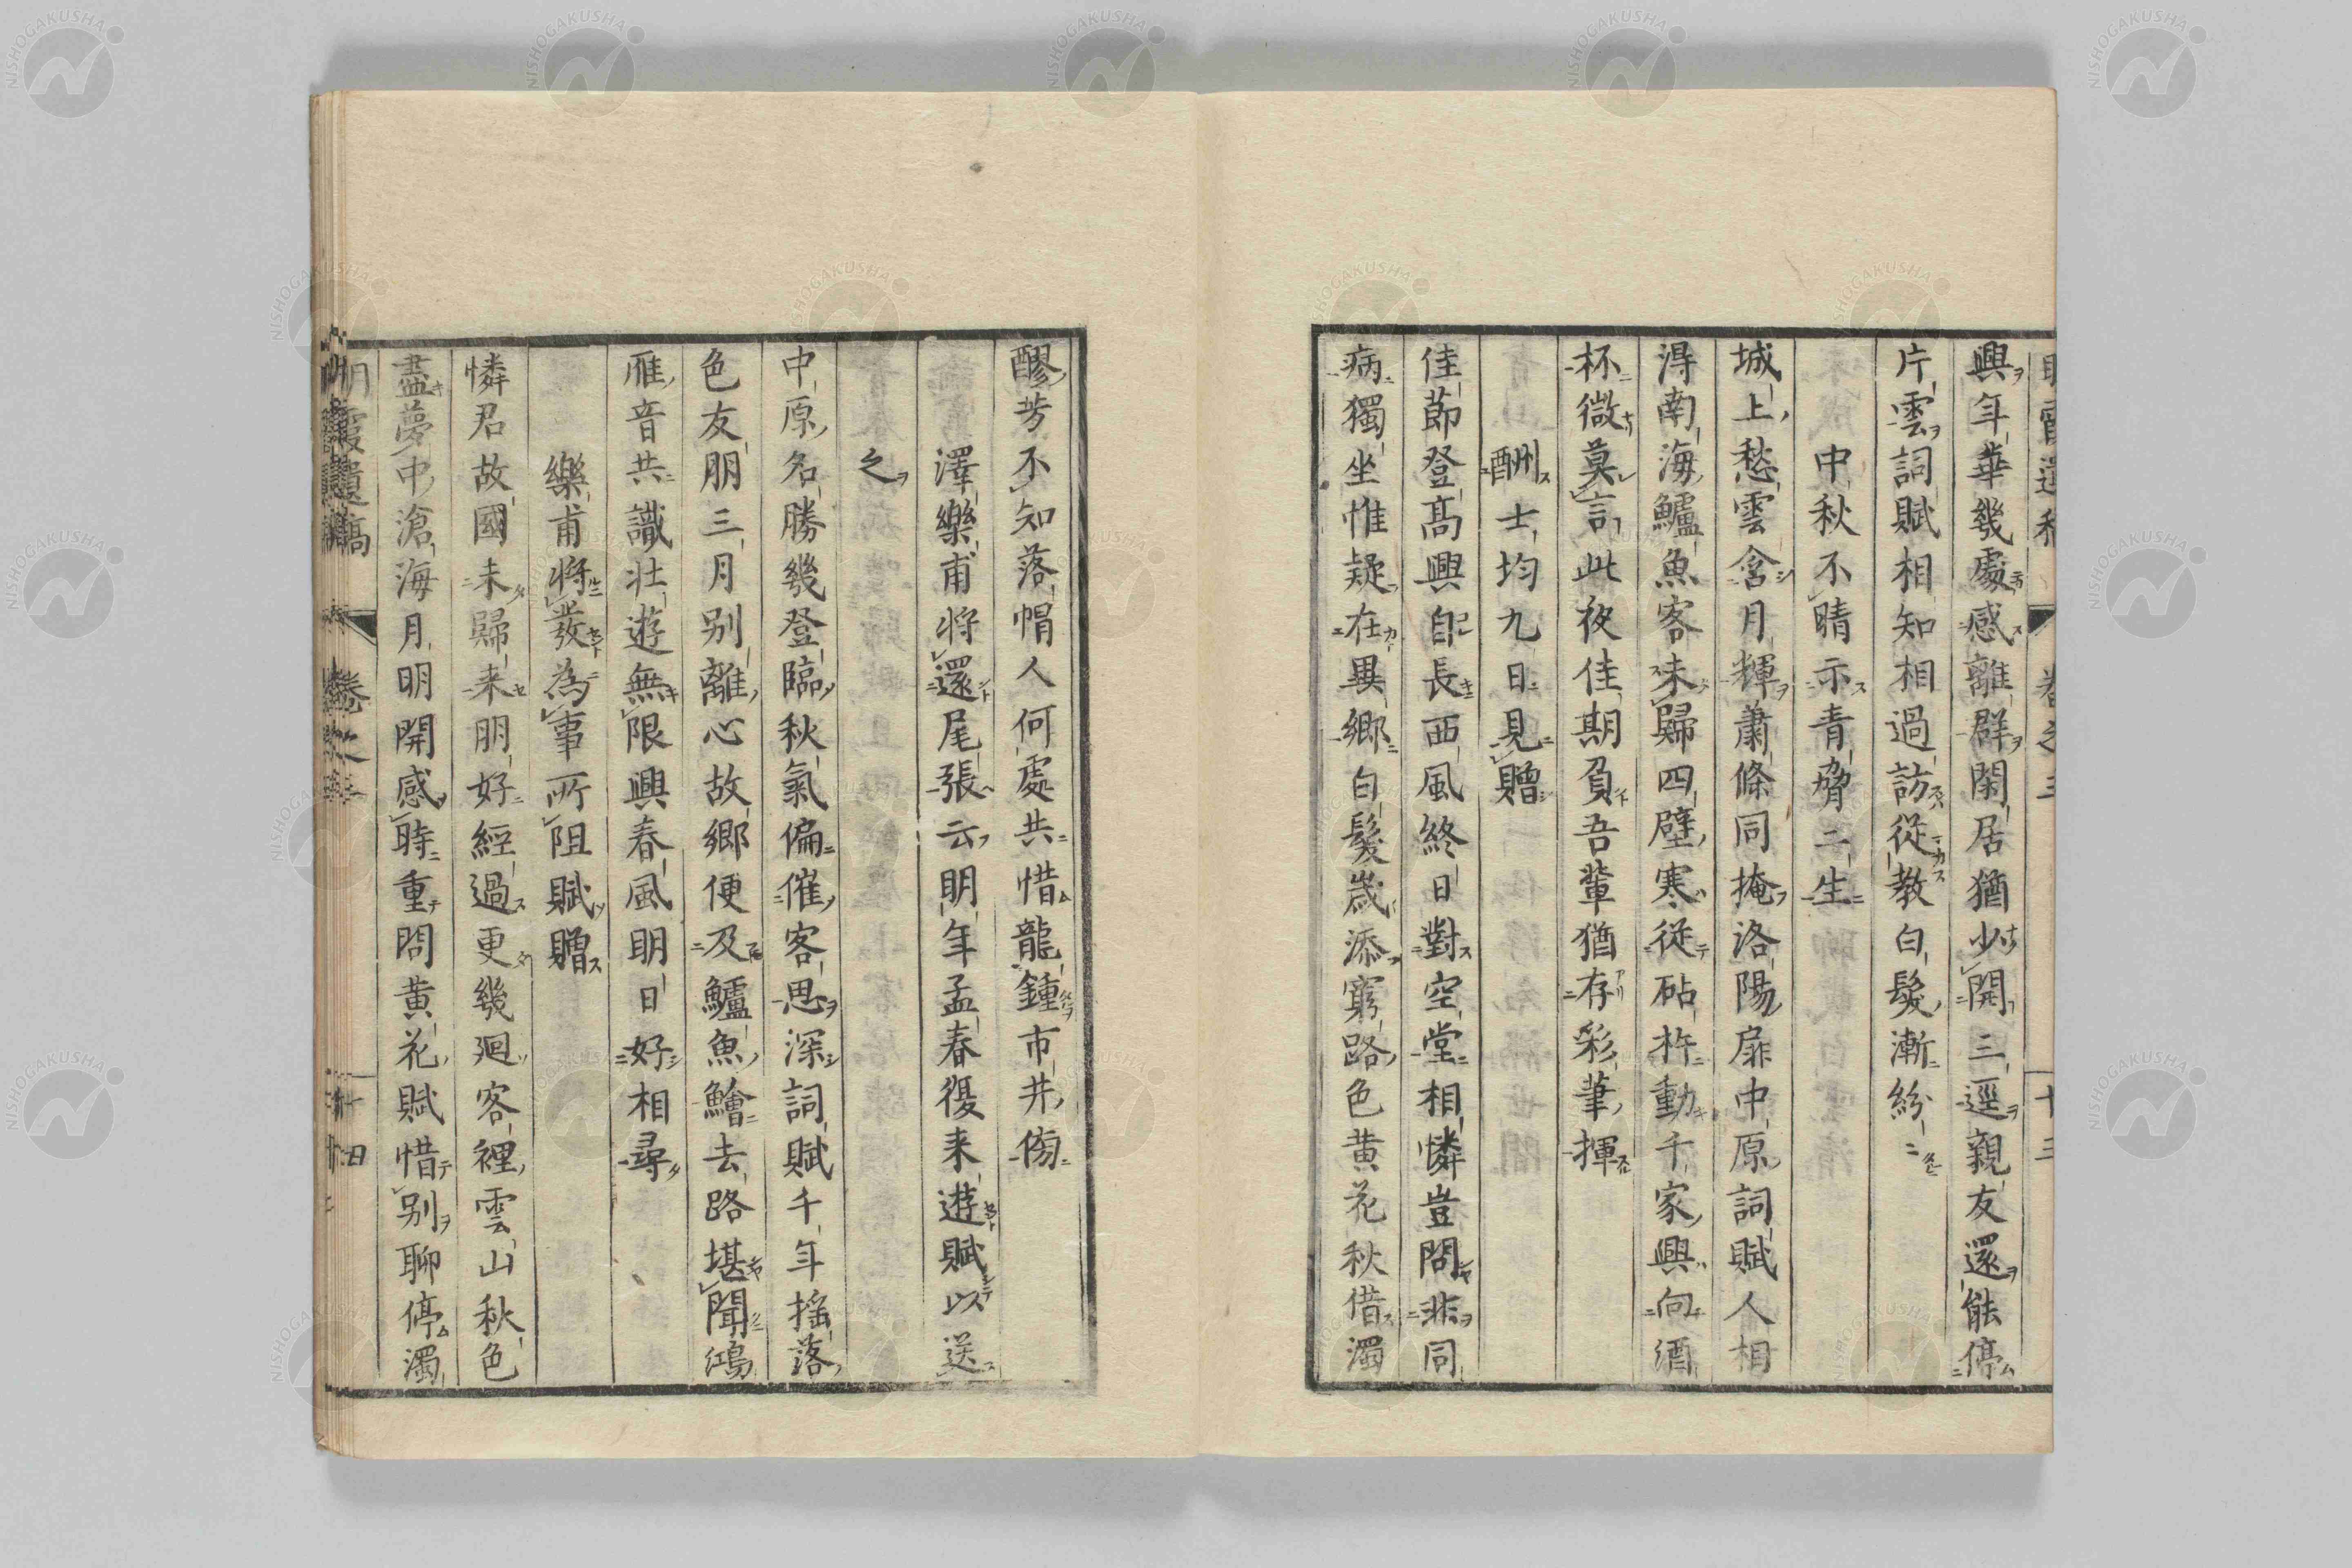 興年華幾處感離群閑居猶少開三逕親友還能停
片雲詞賦相知相過訪從教白髮漸紛〻
中秋不晴示青脊二生
城上愁雲含月輝蕭條同掩洛陽扉中原詞賦人相
得南海鱸魚客未歸四壁寒從砧杵動千家興向酒
杯微莫言此夜佳期負吾輩猶存彩筆揮
酬士均九日見贈
佳節登高興自長西風終日對空堂相憐豈問非同
病獨坐惟疑在異鄉白髮歲添窮路色黃花秋借濁
醪芳不知落帽人何處共惜龍鍾市井傍
澤樂甫將還尾張云明年孟春復来遊賦以送
之
中原名勝幾登臨秋氣偏催客思深詞賦千年搖落
色友朋三月別離心故鄉便及鱸魚鱠去路堪聞鴻
雁音共識壯遊無限興春風明日好相尋
樂甫將發為事所阻賦贈
憐君故國未歸来朋好經過更幾廻客裡雲山秋色
盡夢中滄海月明開感時重問黃花賦惜別聊停濁
明霞遺稿 卷之三 十四